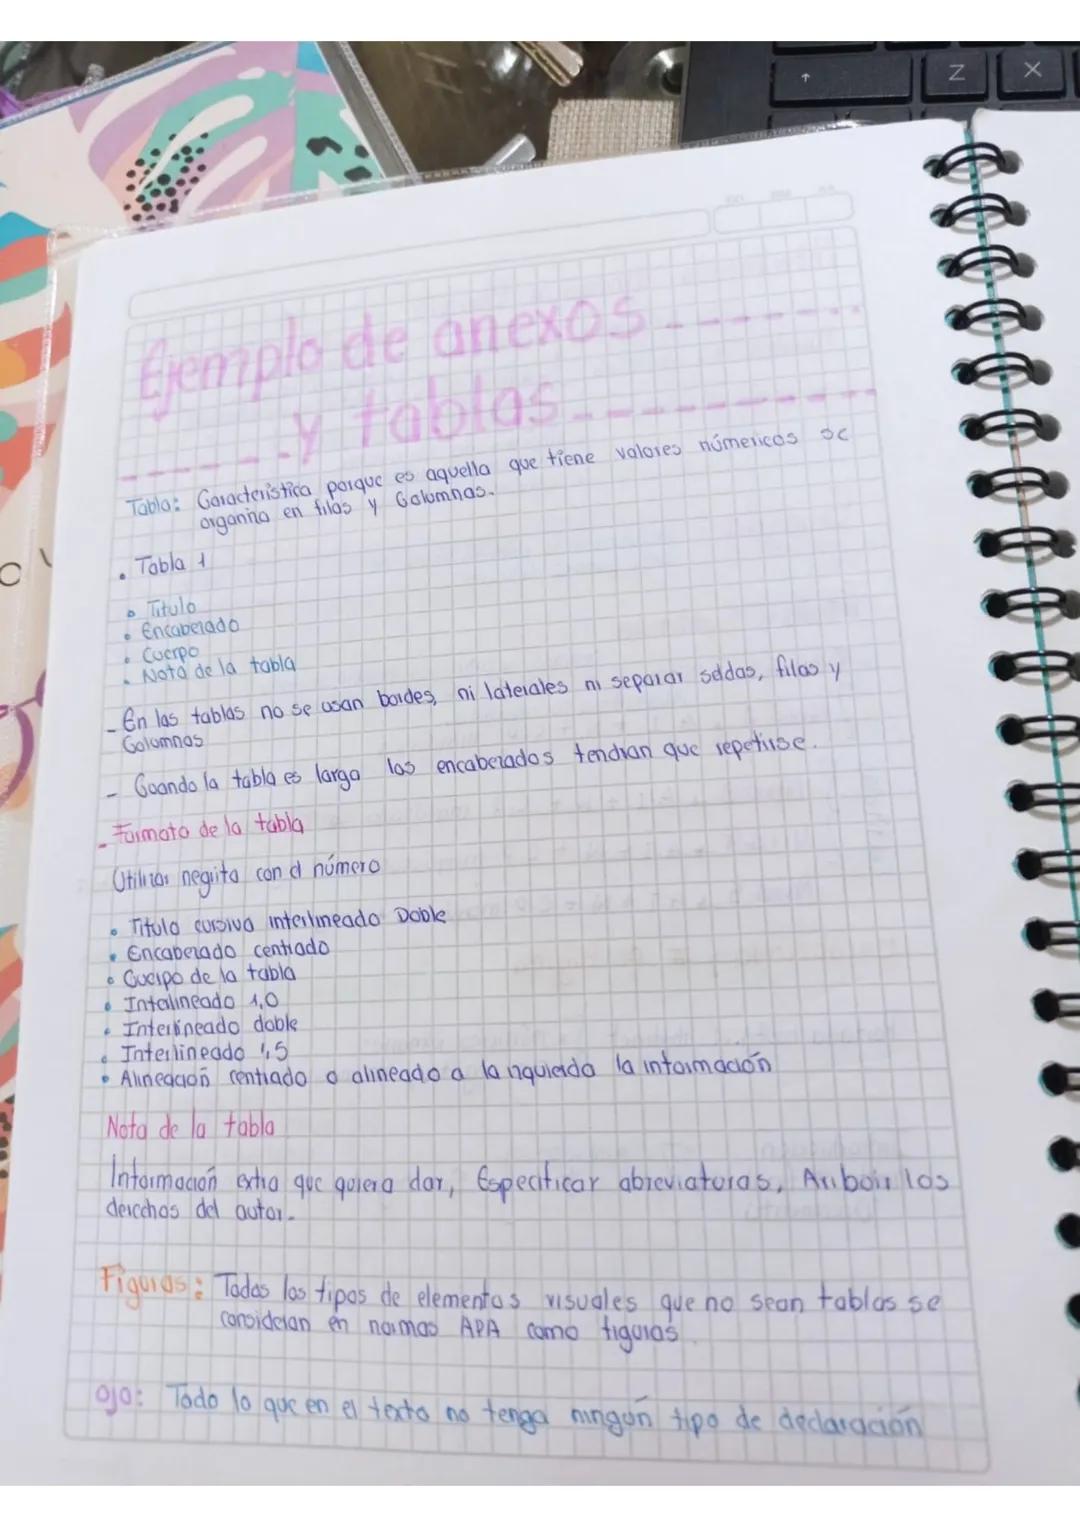 ↑ Z X
Ejemplo de anexos
y tablas
Tabla: Característica porque es aquella que tiene valores númericos se
organiña en filas y Columnas.
• Tabla 1
• Titulo
• Encabezado
• Cuerpo
• Nota de la tabla
- En las tablas no se usan bordes, ni laterales ni separar seldas, filas y
Columnas
- Cuando la tabla es larga los encabezados tendran que repetirse.
- Formato de la tabla
Utilizar negrita con el número
• Titulo cursiva interlineado Doble
• Encabezado centrado
• Cuerpo de la tabla
• Intalineado 1,0
• Interlineado doble
• Interlineado 1,5
• Alineación centrado o alineado a la izquierda la información
Nota de la tabla
Información extra que quiera dar, Especificar abreviaturas, Arriboir los
derechos del autor.
Figuras: Todos los tipos de elementos visuales que no sean tablas se
consideran en normas APA como figuras.
Ojo: Todo lo que en el texto no tenga ningún tipo de declaración